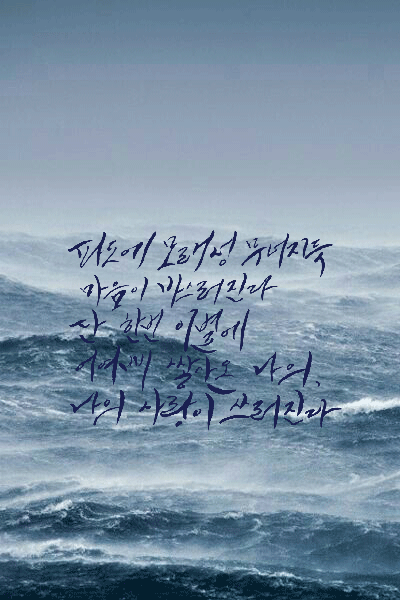 파도에 모래성 무너지듯
마음이 바스러진다
단 한번 이별에
어여삐 쌓아온 나의,
나의 사랑이 쓰러진다